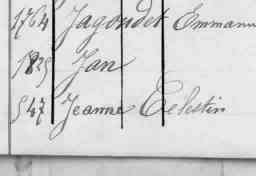 1764 Jagoudet Emmanu
1825 Jan
547 Jeanne Celestin